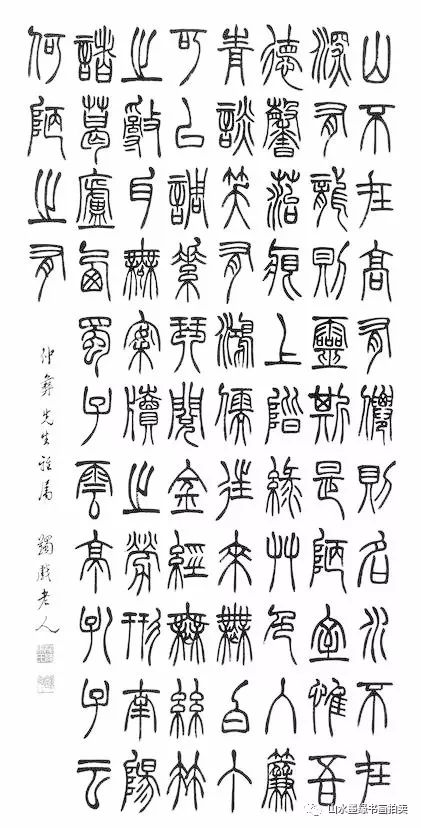 山不在高有僊則名水不在
深有龍則靈斯是陋室惟吾
德馨菭痕上階綠艸色入簾
青談笑有鴻儒往來無白丁
可以調素琴閱金經無絲竹
之亂耳無案牘之勞形南陽
諸葛廬西蜀子雲亭孔子云
何陋之有
冲彝先生雅属 蠲戲老人
山水墨缘书画拍卖